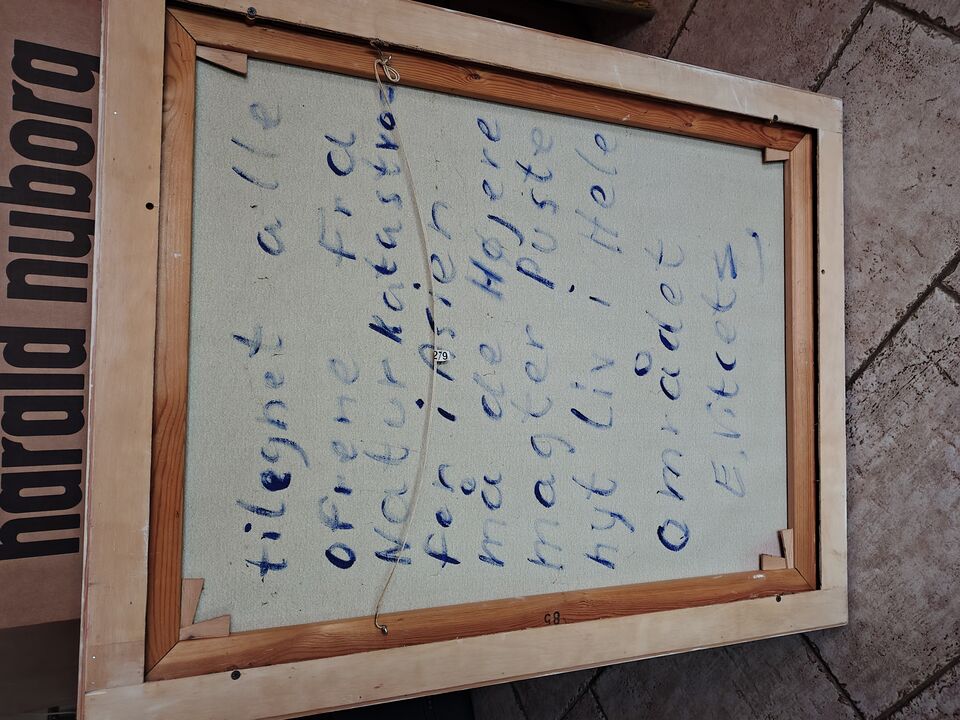 harald nyborg
tilegnet alle
ofrene fra
Naturkatastrof
fen i Asien
må de Højere
magter puste
nyt Liv i Hele
området
279
B5